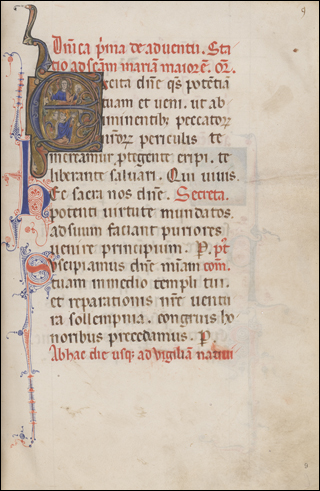 Dnica pma de adventu. Sta
tio ad scam mariam maiore. or.
Excita dne qs potetia
tuam et veni. ut ab
iminentibz peccator
nror periculis te
mereamur ptegente eripi. te
liberante salvari. Qui vivis.
Hec sacra nos dne. Secreta.
potenti virtute mundatos
ad suum faciant puriores
venire principium. P. pt
Suscipiamus dne miam com
tuam in medio templi tui.
et reparationis nre ventu
ra sollempnia. congruis ho
noribus precedamus. P.
Ab hac die usqz ad vigiliam nativi
9